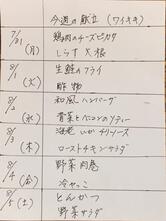 今週の献立 (ワイキキ)
7/31 (月) 鶏肉のチーズピカタ
しらす大根
8/1 (火) 生鮭のフライ
酢物
8/2 (水) 和風ハンバーグ
青菜とベーコンのソテー
8/3 (木) 海老いかチリソース
ローストチキンサラダ
8/4 (金) 野菜肉巻
冷やっこ
8/5 (土) とんかつ
野菜サラダ